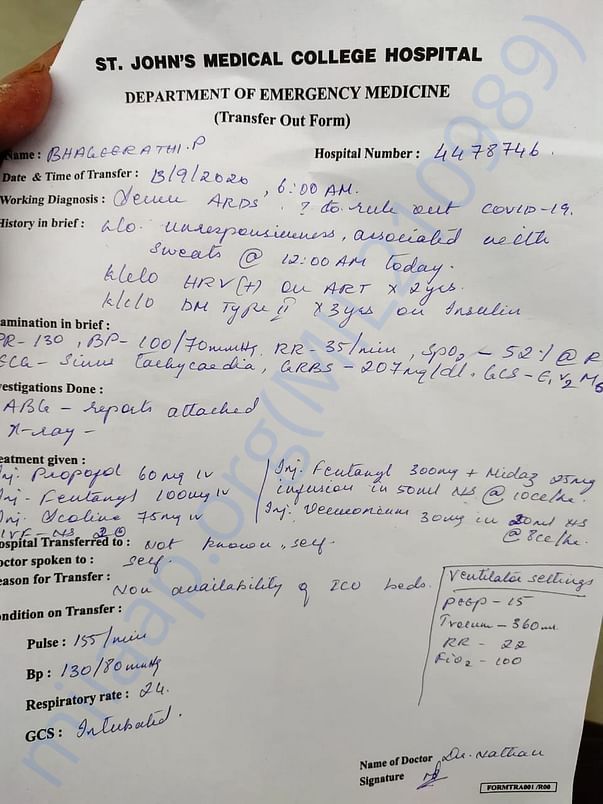 ST. JOHN'S MEDICAL COLLEGE HOSPITAL
DEPARTMENT OF EMERGENCY MEDICINE
(Transfer Out Form)
Name : BHAGEERATHI.P Hospital Number : 4478746
Date & Time of Transfer : 13/9/2020, 6:00 AM.
Working Diagnosis : Severe ARDS ? to rule out COVID-19.
History in brief : h/o. unresponsiveness, associated with
sweats @ 12:00 AM today.
k/c/o HRV(+) on ART x 2yrs.
k/c/o DM Type II x 3yrs on Insulin
amination in brief :
PR-130, BP-100/70mmHg, RR-35/min, SpO2-52% @ R
ECG-Sinus tachycardia, GRBS-207mg/dl. GCS-E1V2M6
vestigations Done :
ABG - reports attached
X-ray -
eatment given :
Inj. Propofol 60mg IV
Inj. Fentanyl 100mg IV
Inj. Scoline 75mg IV
IVF-NS
Inj. Fentanyl 300mg + Midaz 25mg
infusion in 50ml NS @ 10cc/hr.
Inj. Vecuronium 30mg in 30ml NS
@ 8cc/hr.
ospital Transferred to : Not known, self.
octor spoken to : self.
eason for Transfer : Non availability of ICU beds.
ondition on Transfer :
Pulse : 155/min
Bp : 130/80mmHg
Respiratory rate : 24.
GCS : Intubated.
Ventilator settings
PEEP-15
-360ml
RR-22
FiO2-100
Name of Doctor Dr. Nathan
Signature
FORMTRA001 /R00
milaap.org(MIL210989)